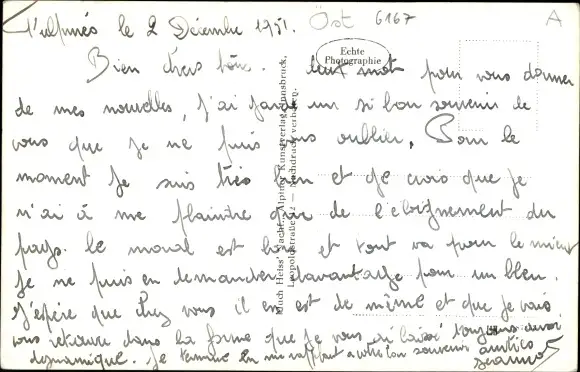 Fulpmes le 2 Décembre 1951. Öst 6167 A
Echte
Photographie
Bien chers tous. Un mot pour vous donner
de mes nouvelles, J'ai gardé un si bon souvenir de
vous que je ne puis pas oublier, Pour le
moment Je suis très bien et Je crois que Je
n'ai à me plaindre que de l'éloignement du
pays. le moral est bon et tout va pour le mieux
Je ne puis en demander d'avantage pour un bleu.
J'espère que chez vous il en est de même et que Je vais
vous retrouver dans la forme que Je vous ai laissé toujours aussi
dynamique. Je termine en me rappelant a votre bon souvenir amitiés
Buch Heiss' Nachf., Alpiner Kunstverlag, Innsbruck,
Leopoldstraße — Nachdruck verboten.